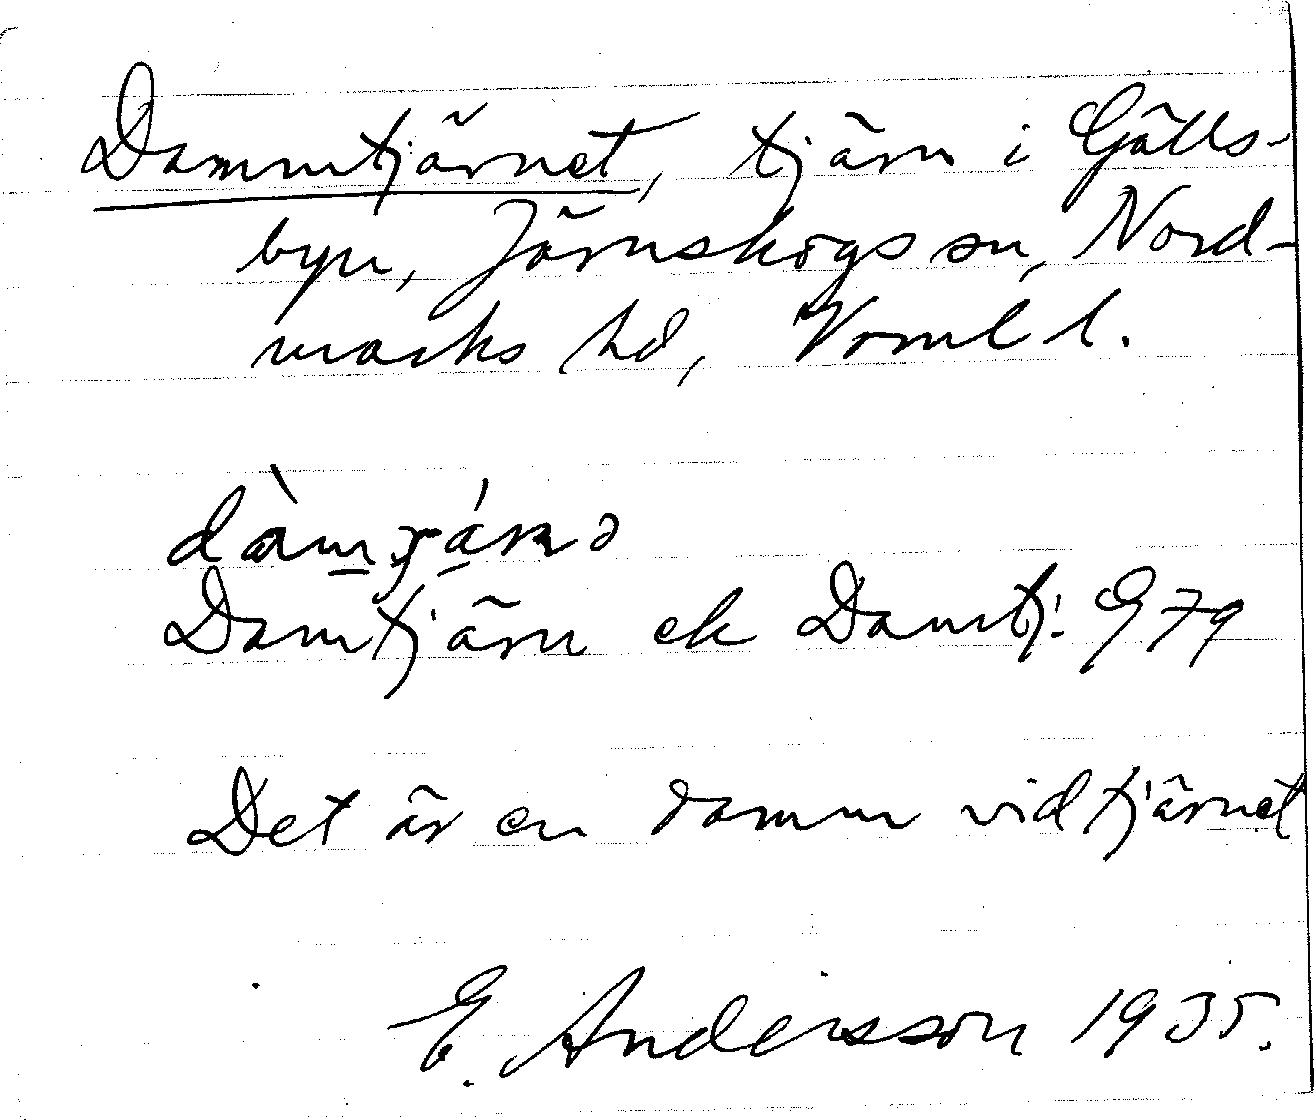 Dammtjärnet, tjärn i Gälls-
byn, Järnskogs sn, Nord-
marks hd, Vrml l.
Damtjärn ek Damtj. G 79
Det är en damm vid tjärnet
E. Andersson 1935.